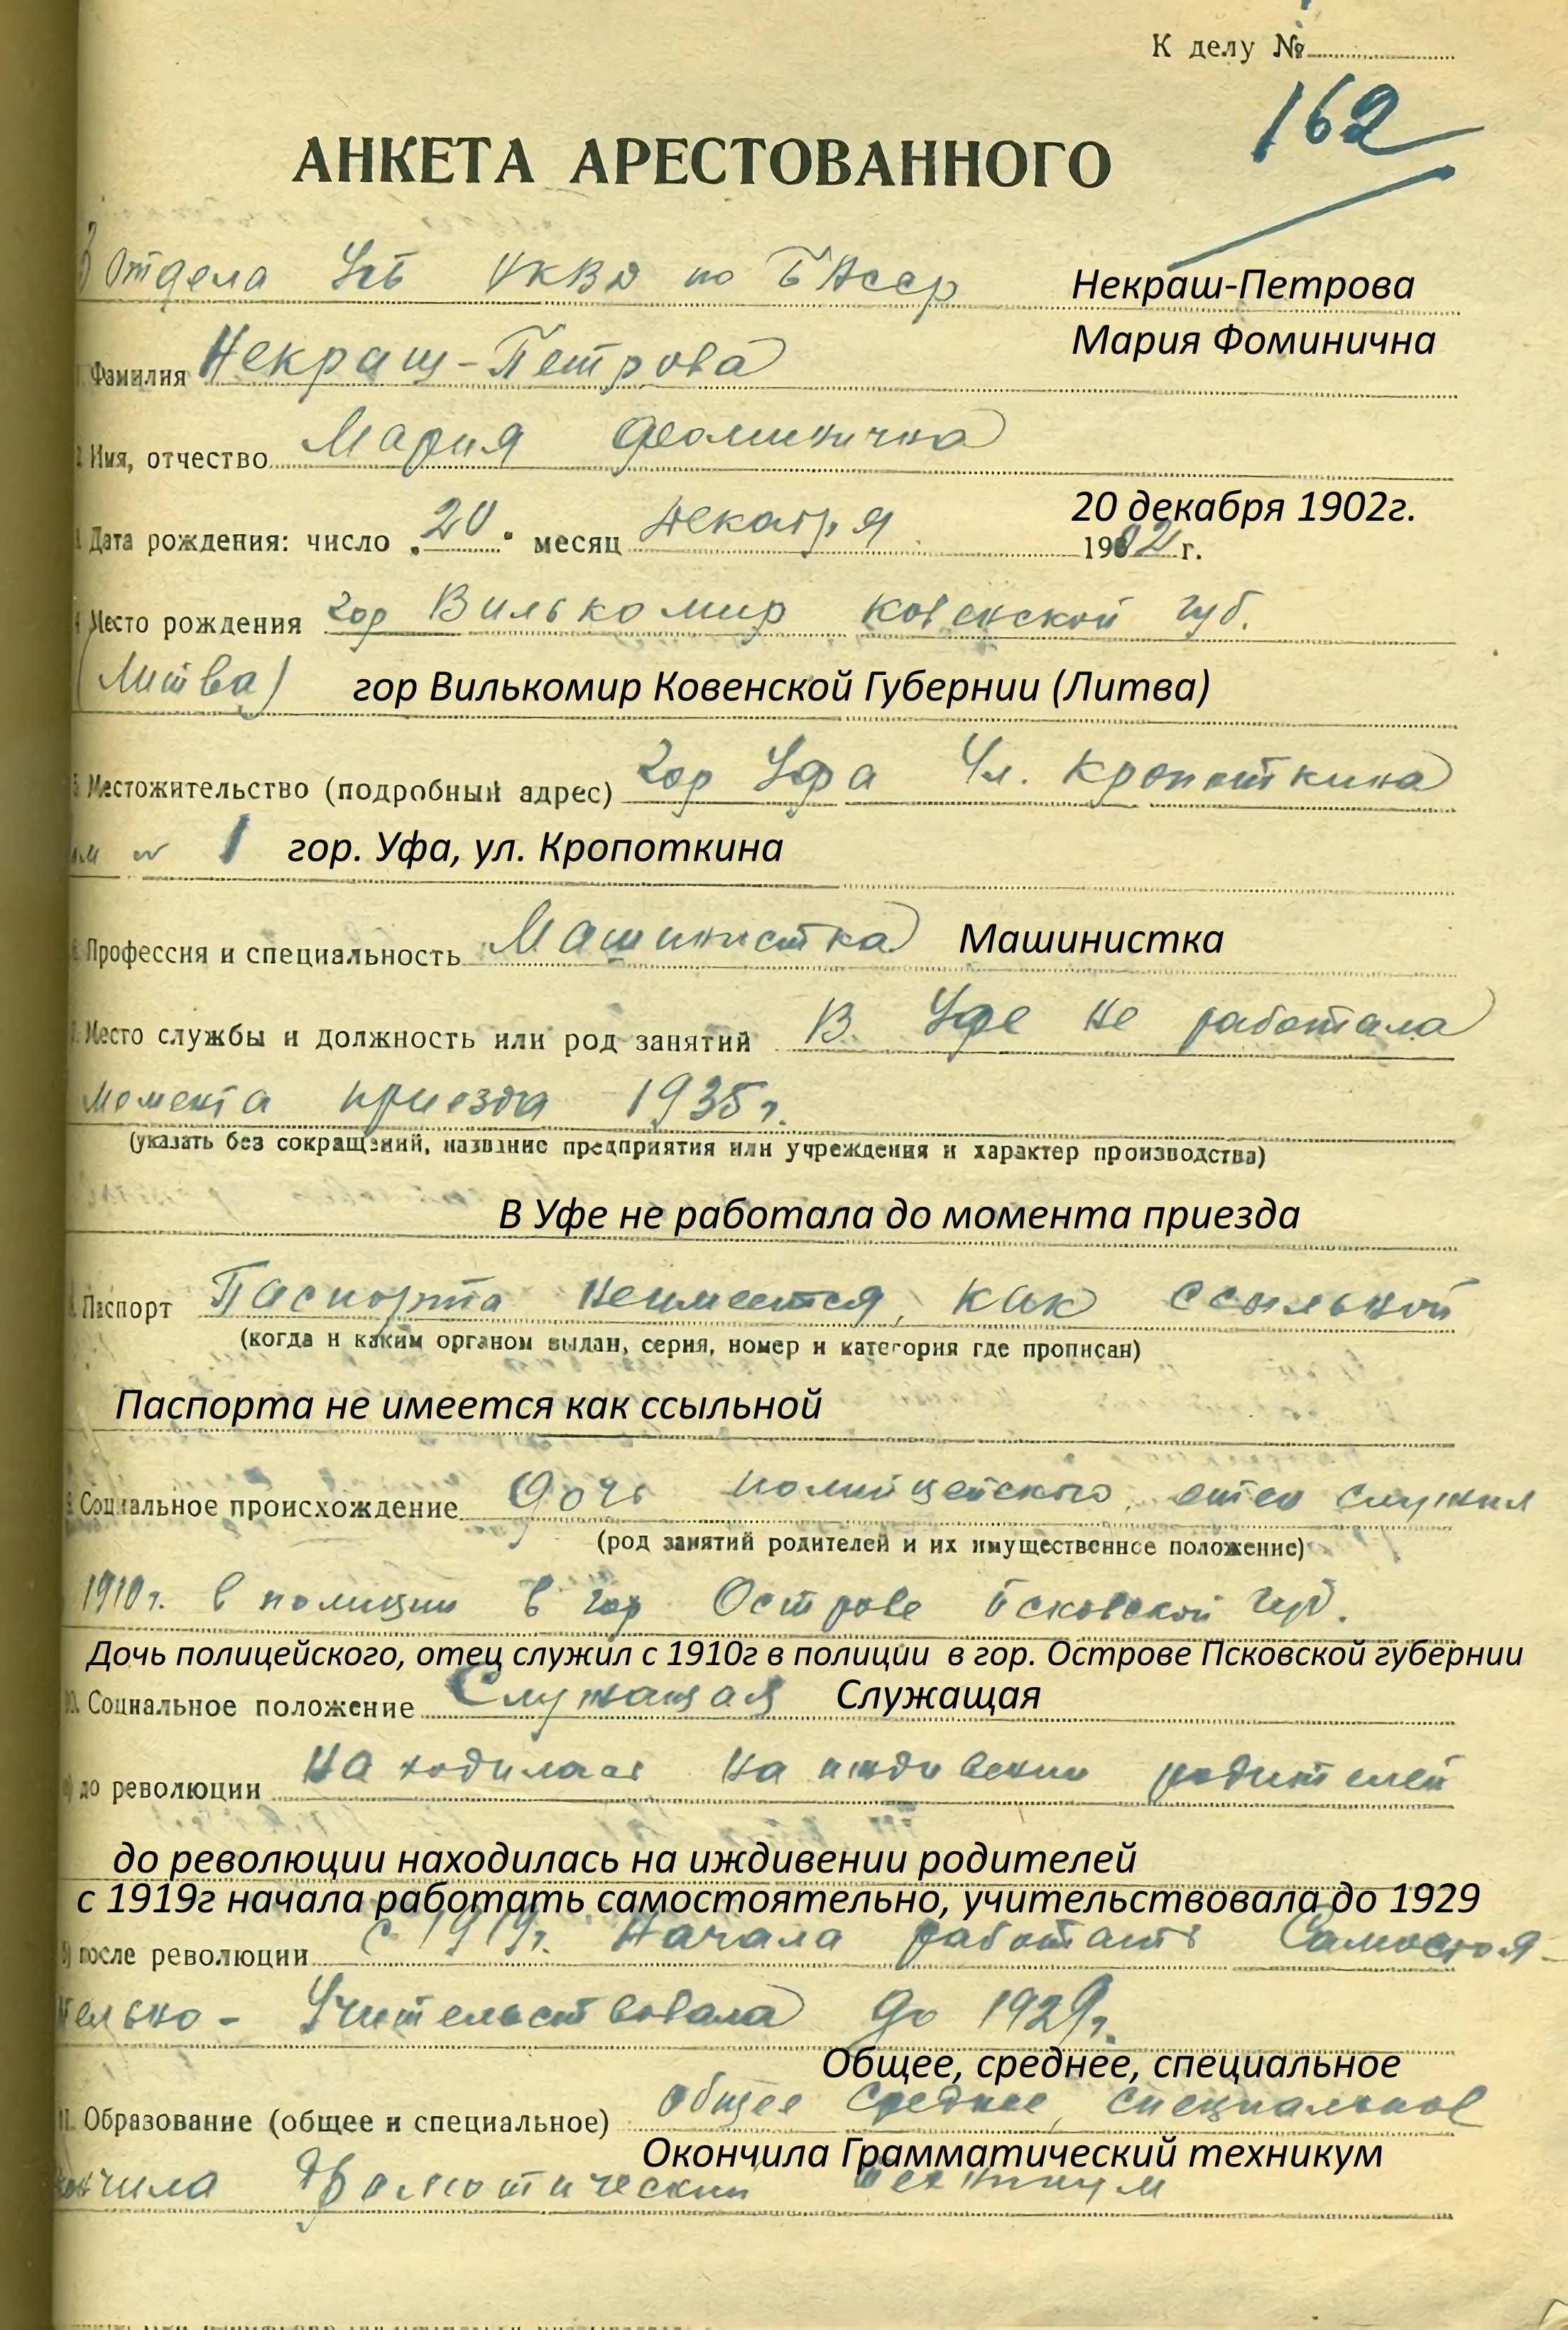 К делу №
162
АНКЕТА АРЕСТОВАННОГО
Отдела УГБ НКВД по БАССР
Некраш-Петрова
Мария Фоминична
Фамилия Некраш-Петрова
Имя, отчество Мария Феоминична
20 декабря 1902г.
Дата рождения: число „20" месяц декабря 1902 г.
Место рождения гор Вилькомир Ковенской губ.
(Литва) гор Вилькомир Ковенской Губернии (Литва)
Местожительство (подробный адрес) гор Уфа Ул. Кропоткина
1 гор. Уфа, ул. Кропоткина
Профессия и специальность Машинистка Машинистка
Место службы и должность или род занятий В. Уфе не работала
момента приезда 1935г.
(указать без сокращений, название предприятия или учреждения и характер производства)
В Уфе не работала до момента приезда
Паспорт Паспорта неимеется, как ссыльной
(когда и каким органом выдан, серия, номер и категория где прописан)
Паспорта не имеется как ссыльной
Социальное происхождение Дочь полицейского, отец служил
(род занятий родителей и их имущественное положение)
1910г. в полиции в гор Острове Псковской губ.
Дочь полицейского, отец служил с 1910г в полиции в гор. Острове Псковской губернии
10. Социальное положение Служащая Служащая
а) до революции Находилась на иждивении родителей
до революции находилась на иждивении родителей
с 1919г начала работать самостоятельно, учительствовала до 1929
б) после революции с 1919г. Начала работать Самостоя-
тельно - Учительствовала до 1929г.
Общее, среднее, специальное
11. Образование (общее и специальное) общее среднее, специальное
Окончила Грамматический техникум
окончила Драмотический техникум